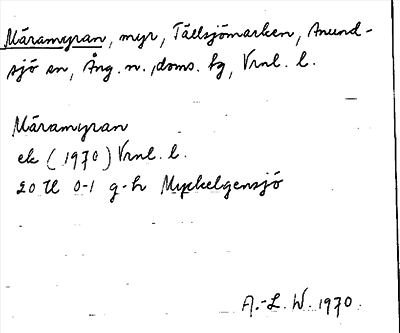 Märamyran, myr, Tällsjömarken, Anund-
sjö sn, Ång. n. doms. fg, Vrnl. l.
Märamyran
ek (1970) Vrnl. l.
20 H 0-1 g-h Myckelgensjö
A.-L. W. 1970.